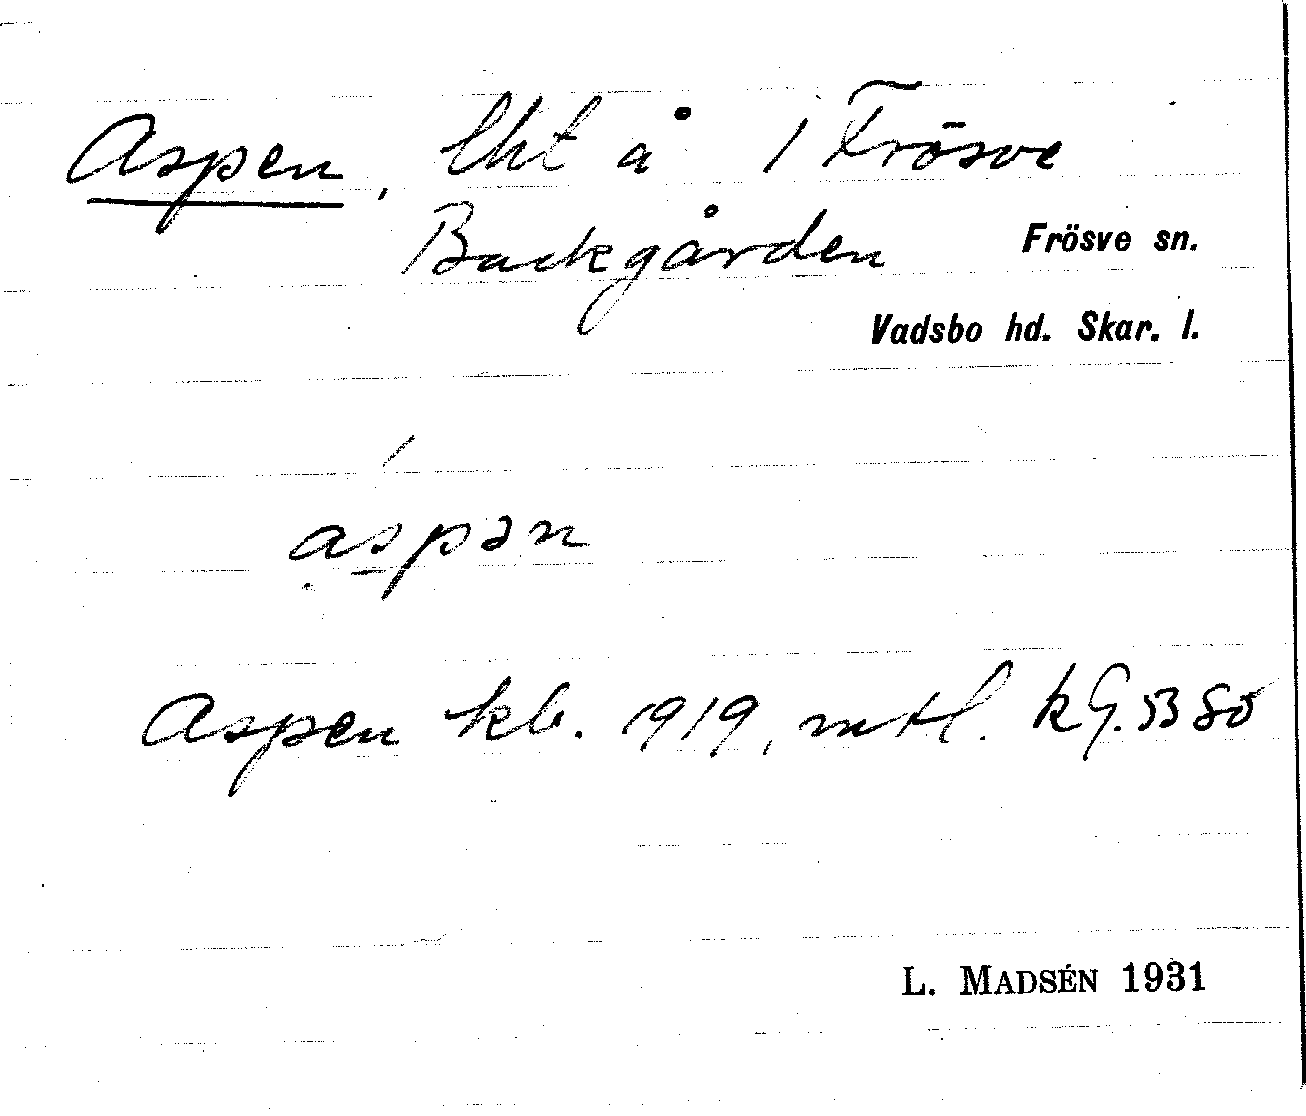 Aspen, lht å 1 Frösve
Backgården Frösve sn.
Vadsbo hd. Skar. l.
aspən
Aspen kb. 1919, mtl. kG. 53 80
L. MADSÉN 1931